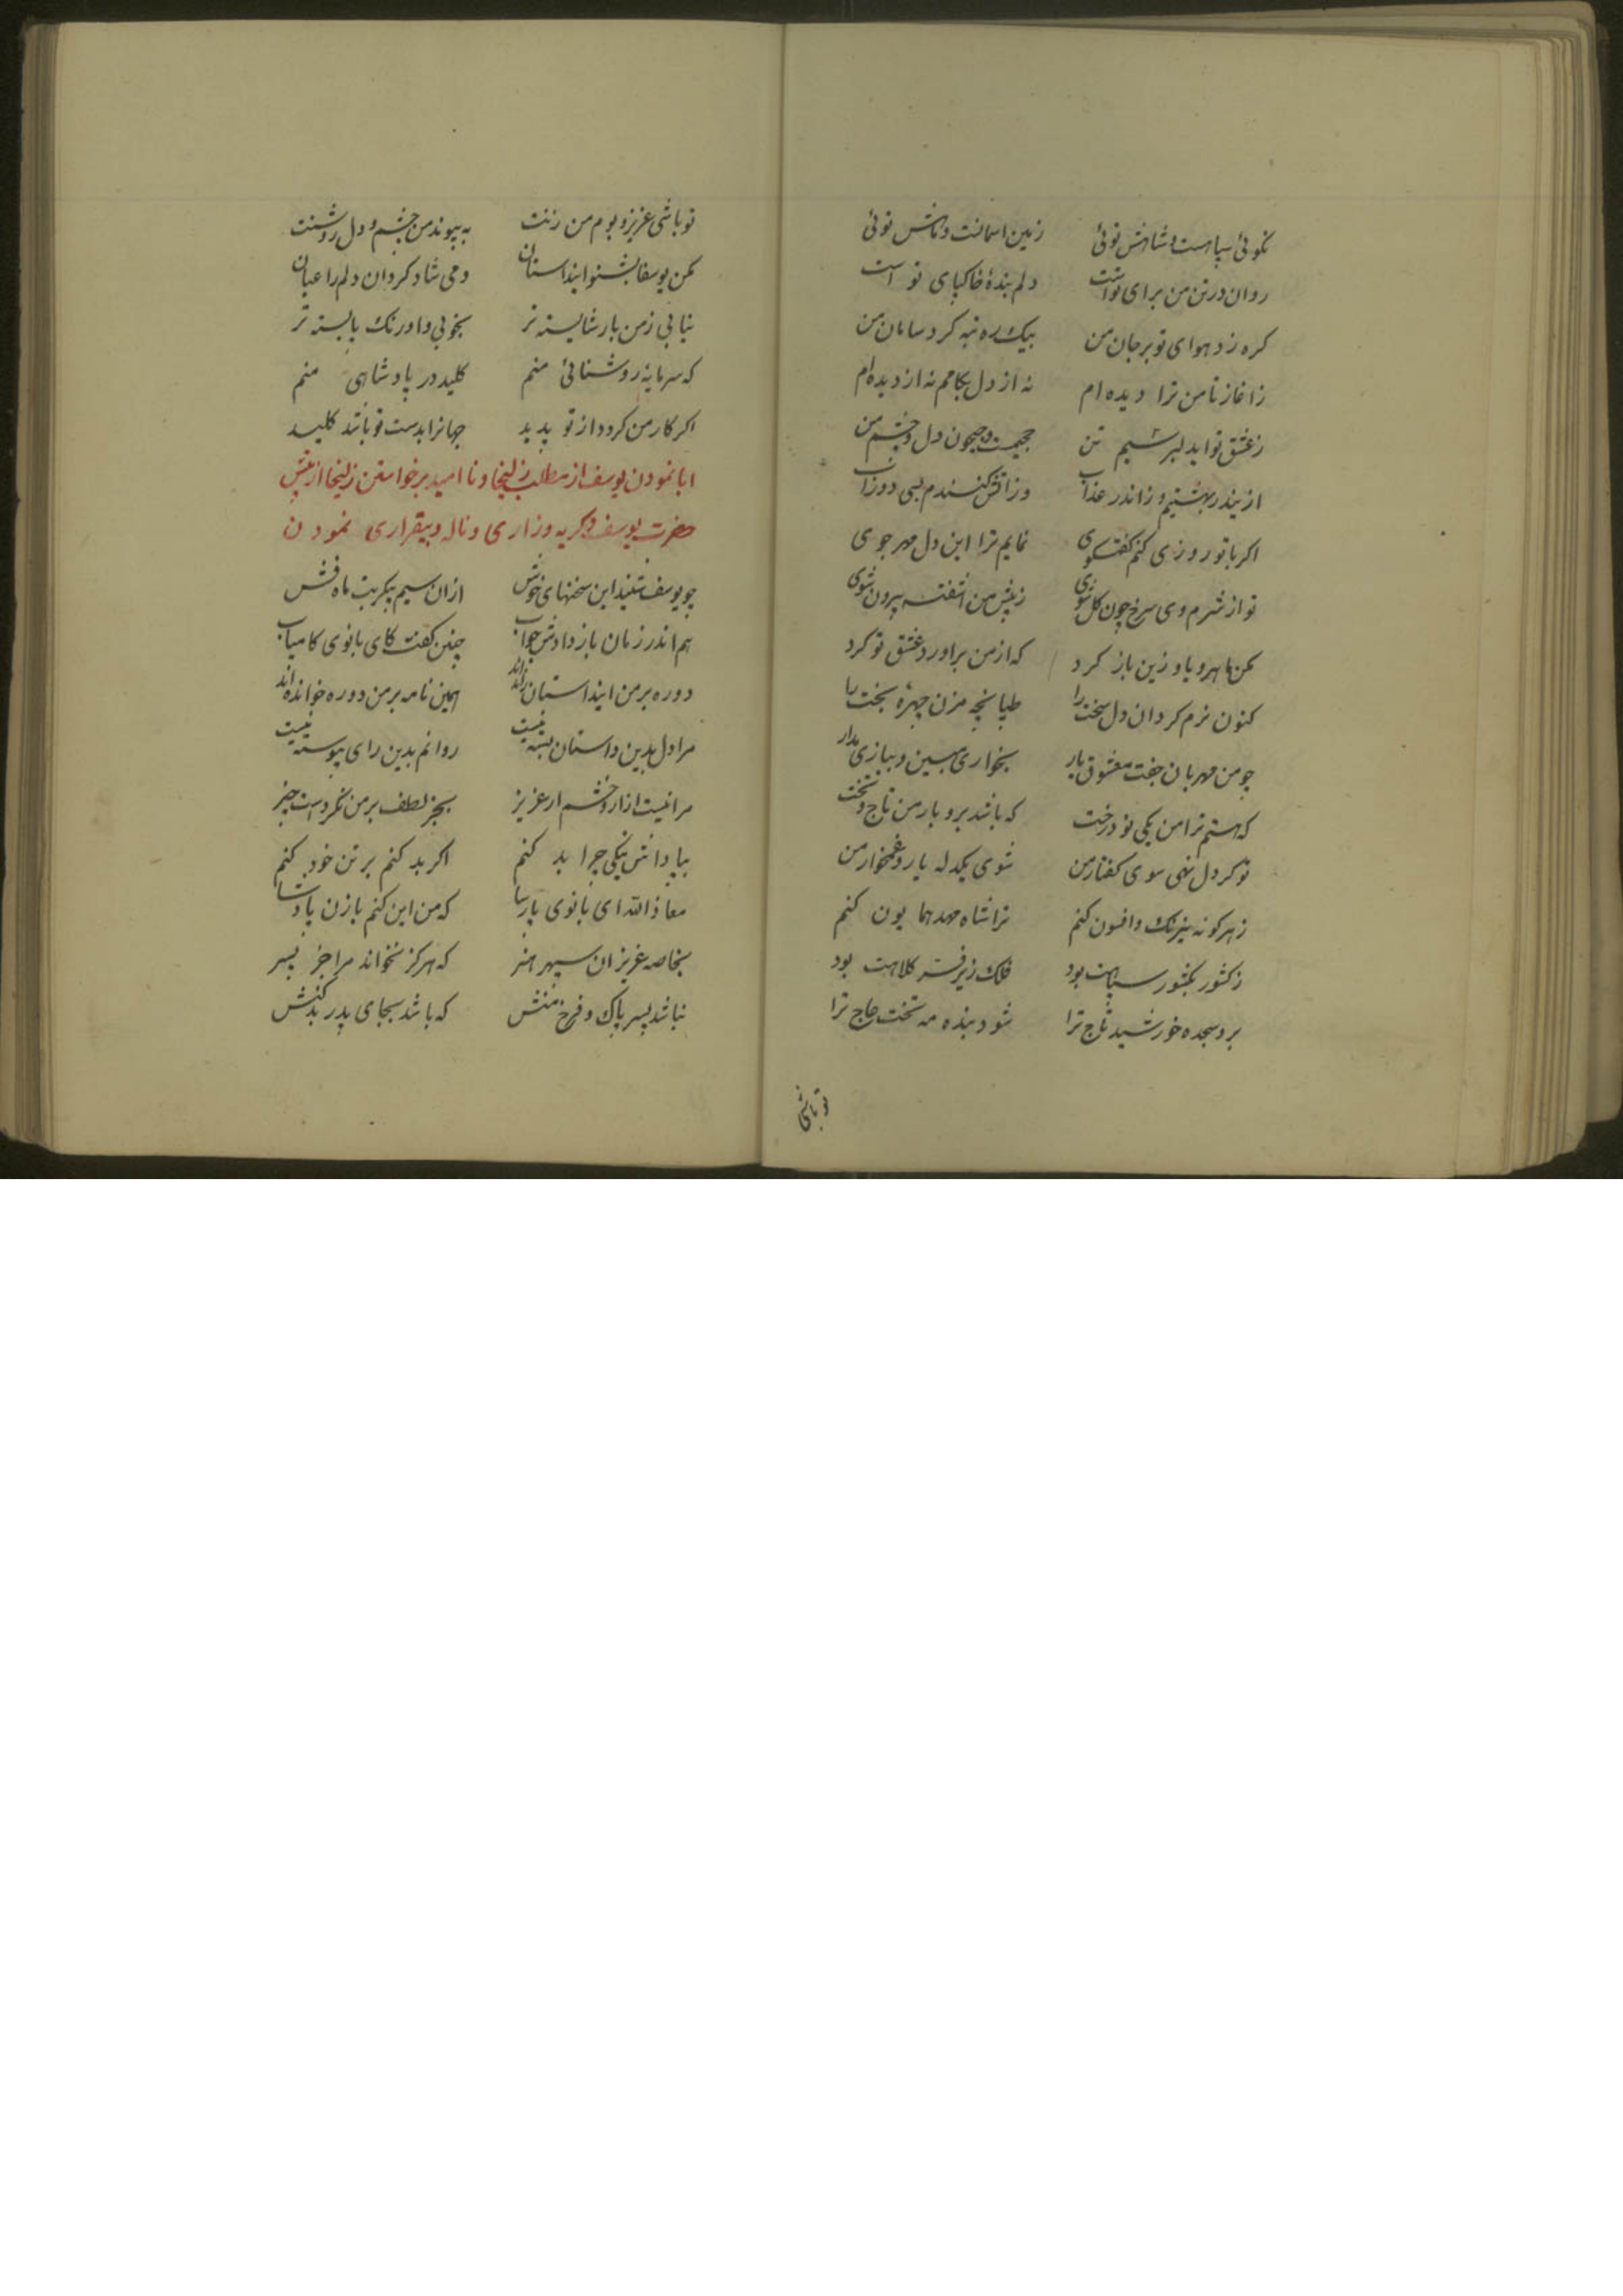 نکوئی سپاهست و شاهش توئی زمین اسمانست و ماهش توئی
روان در تن من برای تو است دلم بندهٔ خاکپای تو است
کره زد هوای تو بر جان من بیک ره تبه کرد سامان من
ز اغاز تا من ترا دیده ام نه از دل بکامم نه از دیده ام
ز عشق تو اید لبر سیم تن جحیمست و جیحون دل و چشم من
ازیندر بهشتیم وزاندر عذاب وز اتش کنندم بسی دوزاب
اکر با تو روزی کنم کفتکوی نمایم ترا این دل مهر جوی
تو از شرم وی سرخ چون کل شوی ز پیش من اشفته بیرون شوی
مکن ماهرویا و زین باز کرد که از من براورد عشق تو کرد
کنون نرم کردان دل سخت را طپانچه مزن چهرهٔ بخت را
چو من مهربان جفت معشوق یار بخواری مبین و ببازی مدار
که هستم ترا من یکی نو درخت که باشد برو بار من تاج و تخت
تو کر دل نهی سوی کفتار من شوی یکدله یار و غمخوار من
ز هر کونه نیرنک و افسون کنم ترا شاه مهد همایون کنم
ز کشور بکشور سپاهت بود فلک زیر فر کلاهت بود
برد سجده خورشید تاج ترا شود بنده مه تخت عاج ترا
تو باشی
تو باشی عزیز و بوم من زنت به پیوند من چشم و دل روشنت
مکن یوسفا بشنو اینداستان دمی شاد کردان دلم را عیان
نیابی ز من یار شایسته تر بخوبی و اورنک بایسته تر
که سرمایه روشنائی منم کلید در پادشاهی منم
اکر کار من کردد از تو پدید جهانرا بدست تو باشد کلید
ابا نمودن یوسف از مطلب زلیخا و نا امید برخواستن زلیخا از پیش
حضرت یوسف و کریه و زاری و ناله و بیقراری نمودن
چو یوسف شنید این سخنهای خوش ازان سیم پیکر بت ماه فش
هم اندر زمان باز دادش جواب چنین کفت کای بانوی کامیاب
دوره بر من اینداستان رانده اند همین نامه بر من دوره خوانده اند
مرا دل بدین داستان بسته نیست روانم بدین رای پیوسته نیست
مرا نیست ازار و خشم از عزیز بجز لطف بر من نکردست چیز
بپاداش نیکی چرا بد کنم اکر بد کنم بر تن خود کنم
معاذ الله ای بانوی پارسا که من این کنم با زن پادشا
بخاصه عزیز ان سپهر هنر که هرکز نخواند مرا جز پسر
نباشد پسر پاک و فرخ منش که باشد بجای پدر بد کنش